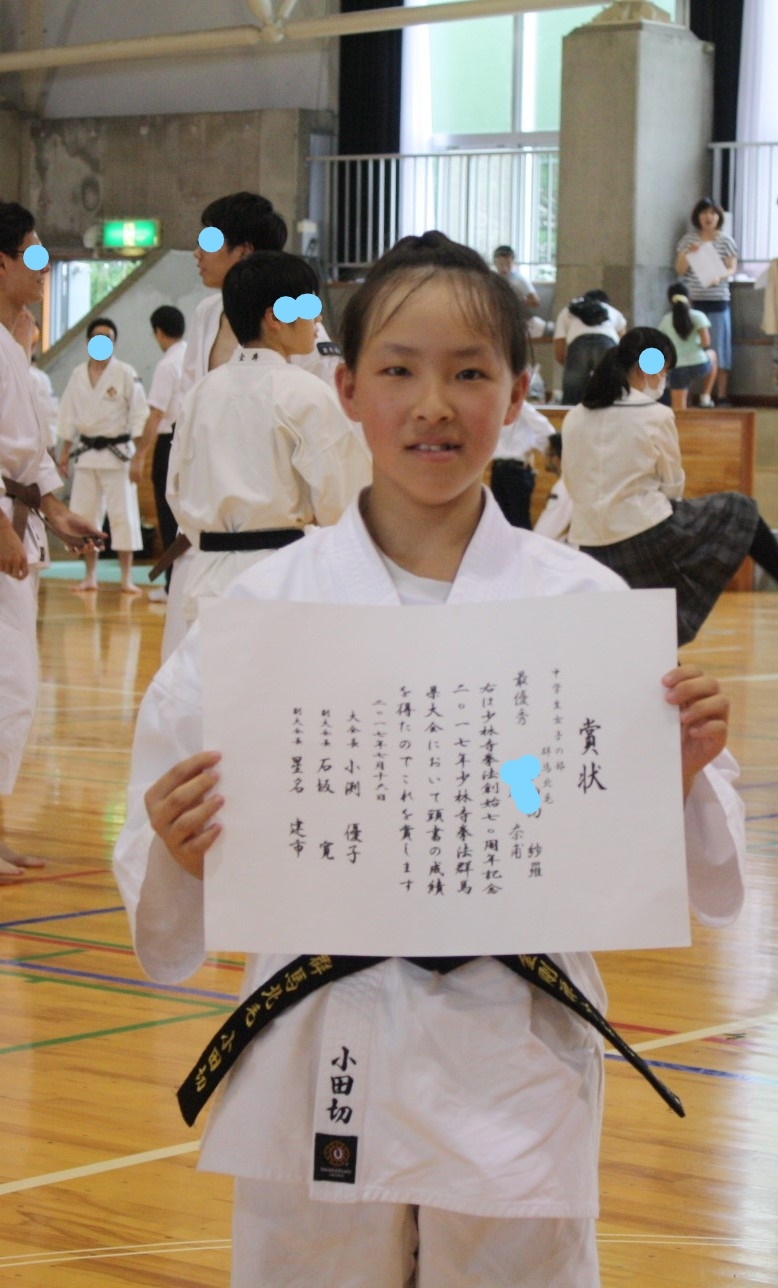 賞状
中学生女子の部
群馬北毛
切 紗羅
最優秀
奈甫
右は少林寺拳法創始七〇周年記念
二〇一七年少林寺拳法群馬
県大会において頭書の成績
を得たのでこれを賞します
二〇一七年七月十六日
大会長 小渕 優子
副大会長 石坂 寛
副大会長 星名 建市
群馬北毛 小田切
小田切